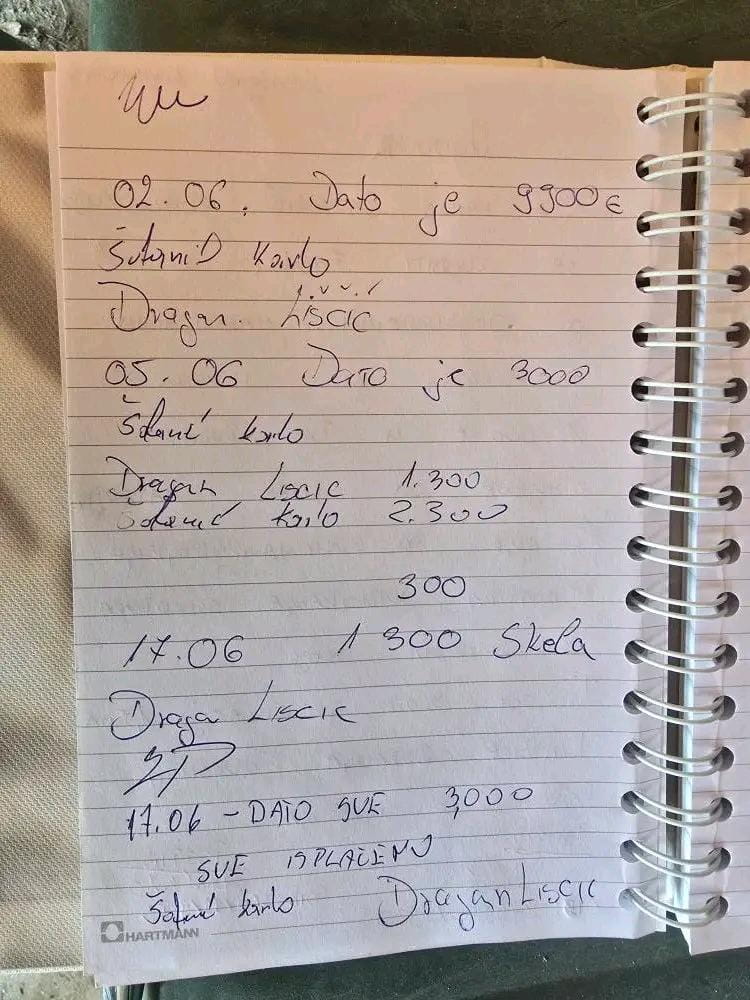 02.06. Dato je 9900€
Karlo
Dragan. Liščić
05.06 Dato je 3000
Karlo
Dragan Liscic 1.300
Karlo 2.300
300
17.06 1 300 Skela
Dragan Liscic
17.06 - DATO SVE 3,000
SVE ISPLAĆENO
Karlo Dragan Liscic
HARTMANN